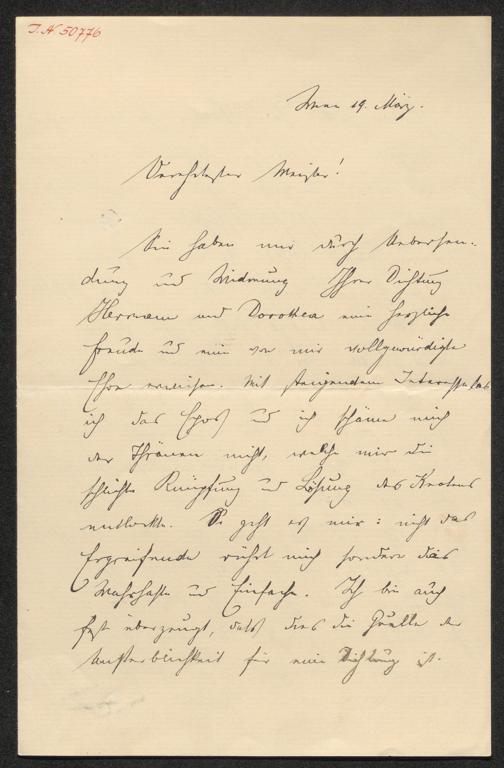 I. N 50776
Wien 19. März.
Verehrtester Meister!
Sie haben mir durch Uebersen-
dung und Widmung Ihrer Dichtung
Hermann und Dorothea eine herzliche
Freude und eine von mir vollgewürdigte
Ehre erwiesen. Mit steigendem Interesse las
ich das Epos und ich schäme mich
der Thränen nicht, welche mir die
schlichte Knüpfung und Lösung des Knotens
entlockte. So geht es mir: nicht das
Ergreifende rührt mich sondern das
Wahrhafte und Einfache. Ich bin auch
fest überzeugt, daß dies die Quelle der
Unsterblichkeit für eine Dichtung ist.